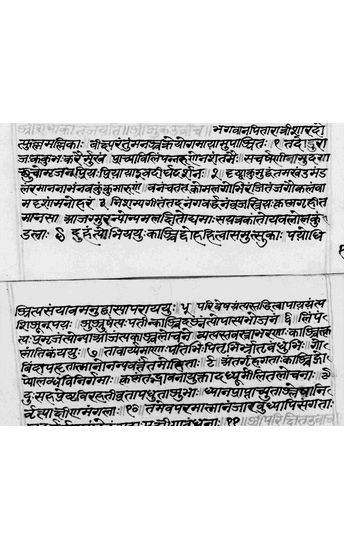 भगवानपि ता रात्रीः शारदो
त्फुल्लमल्लिकाः वीक्ष्य रंतुं मनश्चक्रे योगमायामुपाश्रितः १ तदोडुरा
जः ककुभः करैर्मुखं प्राच्या विलिंपन्नरुणेन शंतमैः स चर्षणीनामुदगा
च्छुचो मृजन् प्रियः प्रियाया इव दीर्घदर्शनः २ दृष्ट्वा कुमुद्वंतमखंडमंड
लं रमाननाभं नवकुंकुमारुणं वनं च तत्कोमलगोभिरंजितं जगौ कलं वा
मदृशां मनोहरं ३ निशम्य गीतं तदनंगवर्द्धनं व्रजस्त्रियः कृष्णगृहीत
मानसाः आजग्मुरन्योन्यमलक्षितोद्यमाः स यत्र कांतो जवलोलकुं
डलाः ४ दुहंत्योभिययुः काश्चिद्दोहं हित्वा समुत्सुकाः पयोधि
श्रित्य संयावमनुद्वास्यापरा ययुः ५ परिवेषयंत्यस्तद्धित्वा पाययंत्य
शिशून्पयः शुश्रूषंत्यः पतीन्काश्चिदश्नंत्योपास्य भोजनं ६ लिंपं
त्यः प्रमृजंत्योन्या अंजंत्यः काश्च लोचने व्यत्यस्तवस्त्राभरणाः काश्चित्कृ
ष्णांतिकं ययुः ७ ता वार्यमाणाः पतिभिः पितृभिर्भ्रातृबंधुभिः गो
विंदापहृतात्मानो न न्यवर्तंत मोहिताः ८ अंतर्गृहगताः काश्चिद्गो
प्योलब्धविनिर्गमाः कृष्णं तद्भावनायुक्ता दध्युर्मीलितलोचनाः ९
दुःसहप्रेष्ठविरहतीव्रतापधुताशुभाः ध्यानप्राप्ताच्युताश्लेषनि
र्वृत्या क्षीणमंगलाः १० तमेव परमात्मानं जारबुध्यापि संगताः
प्रक्षीणबंधनाः ११